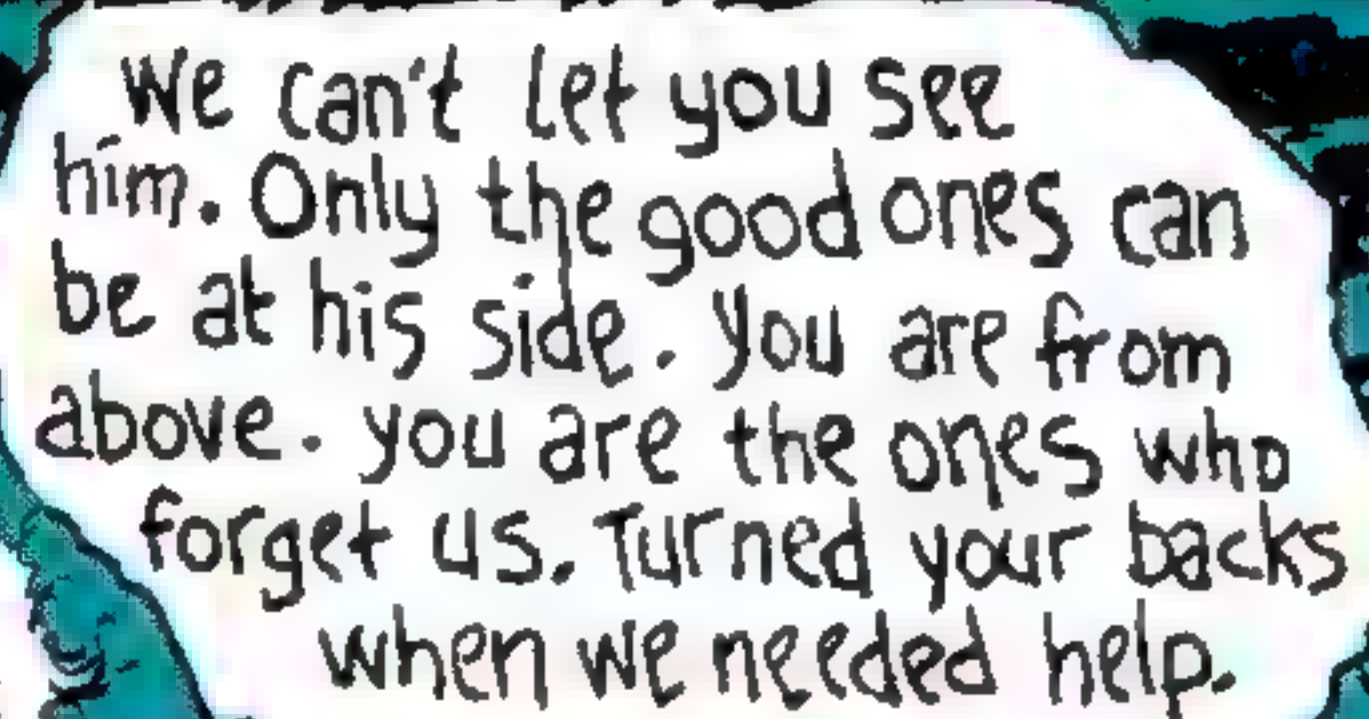 We can't let you see
him. Only the good ones can
be at his side. You are from
above. you are the ones who
forget us. Turned your backs
when we needed help.